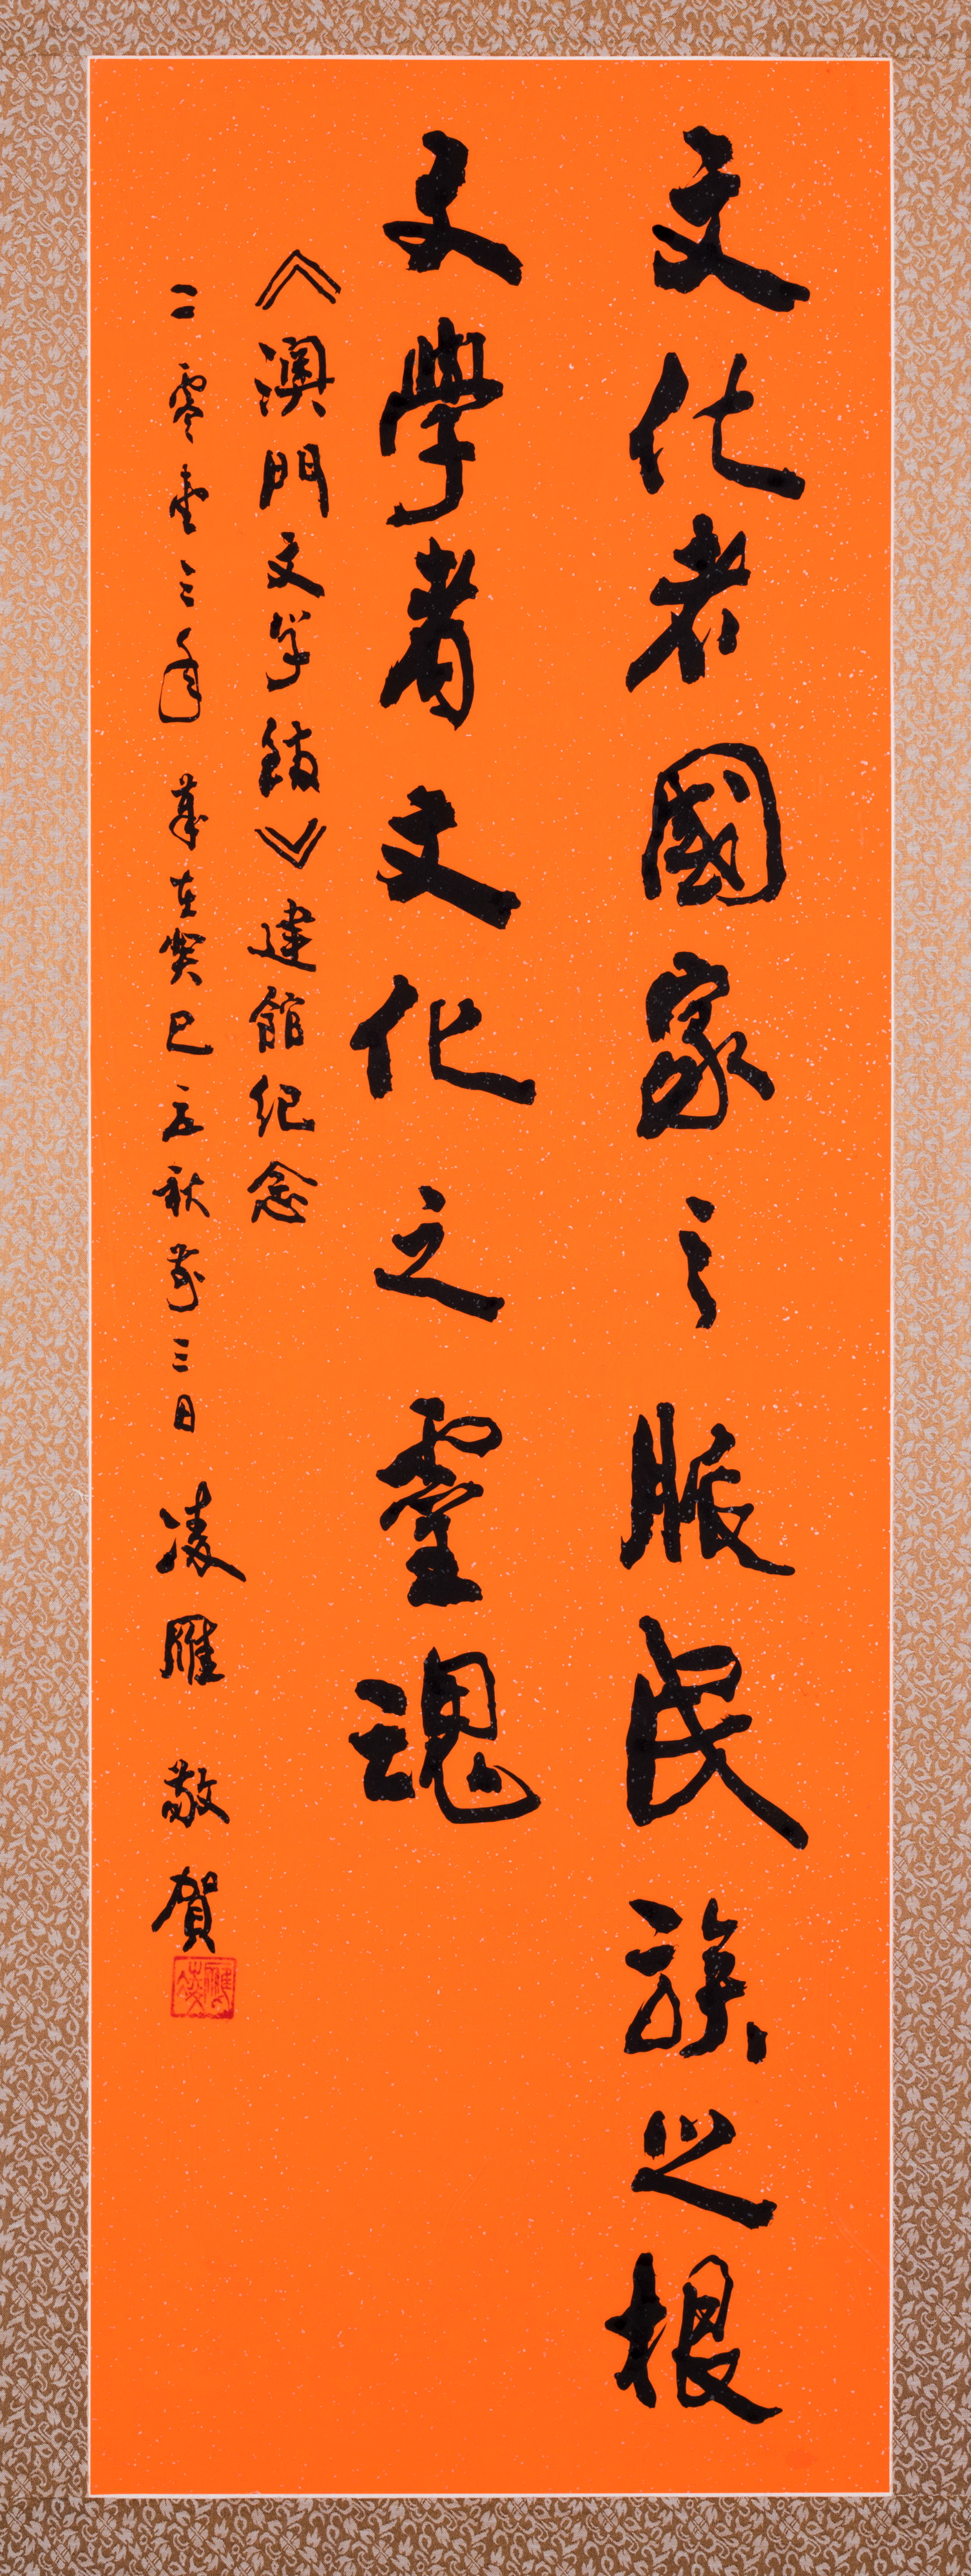 文化者國家之脈民族之根
文學者文化之靈魂
《澳門文学館》建館纪念
二零壹三年 歲在癸巳立秋前三日 凌雁 敬賀